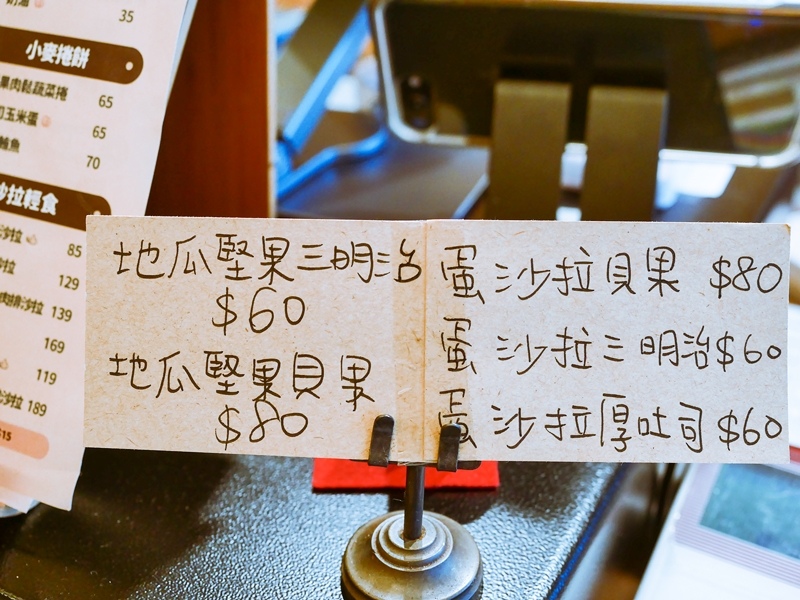 35
小麥捲餅
果肉鬆蔬菜捲
65
玉米蛋
65
鮪魚
70
沙拉輕食
沙拉
85
沙拉
129
沙拉
139
169
119
沙拉
189
$15
地瓜堅果三明治
$60
地瓜堅果貝果
$80
蛋沙拉貝果 $80
蛋沙拉三明治$60
蛋沙拉厚吐司$60